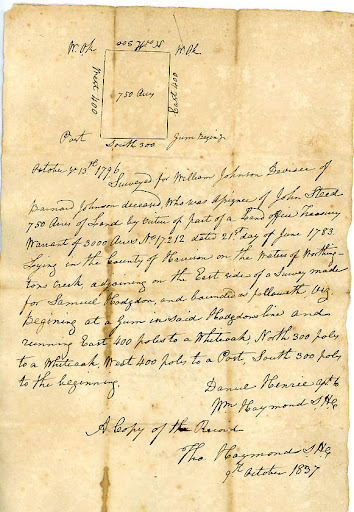 W. Ok North 300 W. Ok
West 400
750 Acres
East 400
Post South 300 Gum Begin'g
October 13th 1796
Surveyed for William Johnson Devisee of
Barnard Johnson deceased, Who was assignee of John Steed
750 Acres of Land by Virtue of part of a Land office Treasury
Warrant of 3000 Acres No 17212 dated 21st day of June 1783.
Lying in the County of Harrison on the Waters of Worthing-
tons Creek adjoining on the East side of a Survey made
for Samuel Hodgdon, and bounded as followeth Viz
Begining at a Gum in said Hodgdons line and
running East 400 poles to a Whiteoak, North 300 poles
to a Whiteoak, West 400 poles to a Post, South 300 poles
to the beginning.
Daniel Henrie
Wm Haymond S.H.C
A Copy of the Record
Tho. Haymond S.H.C
9th October 1837